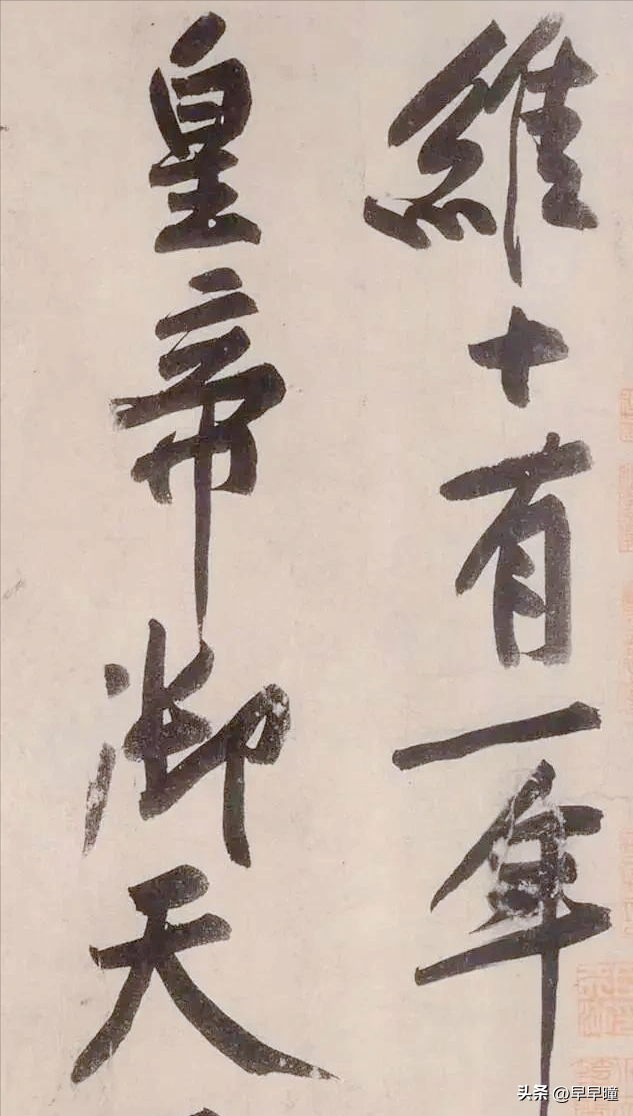 維十有一年
皇帝御天
头条 @早早瞳